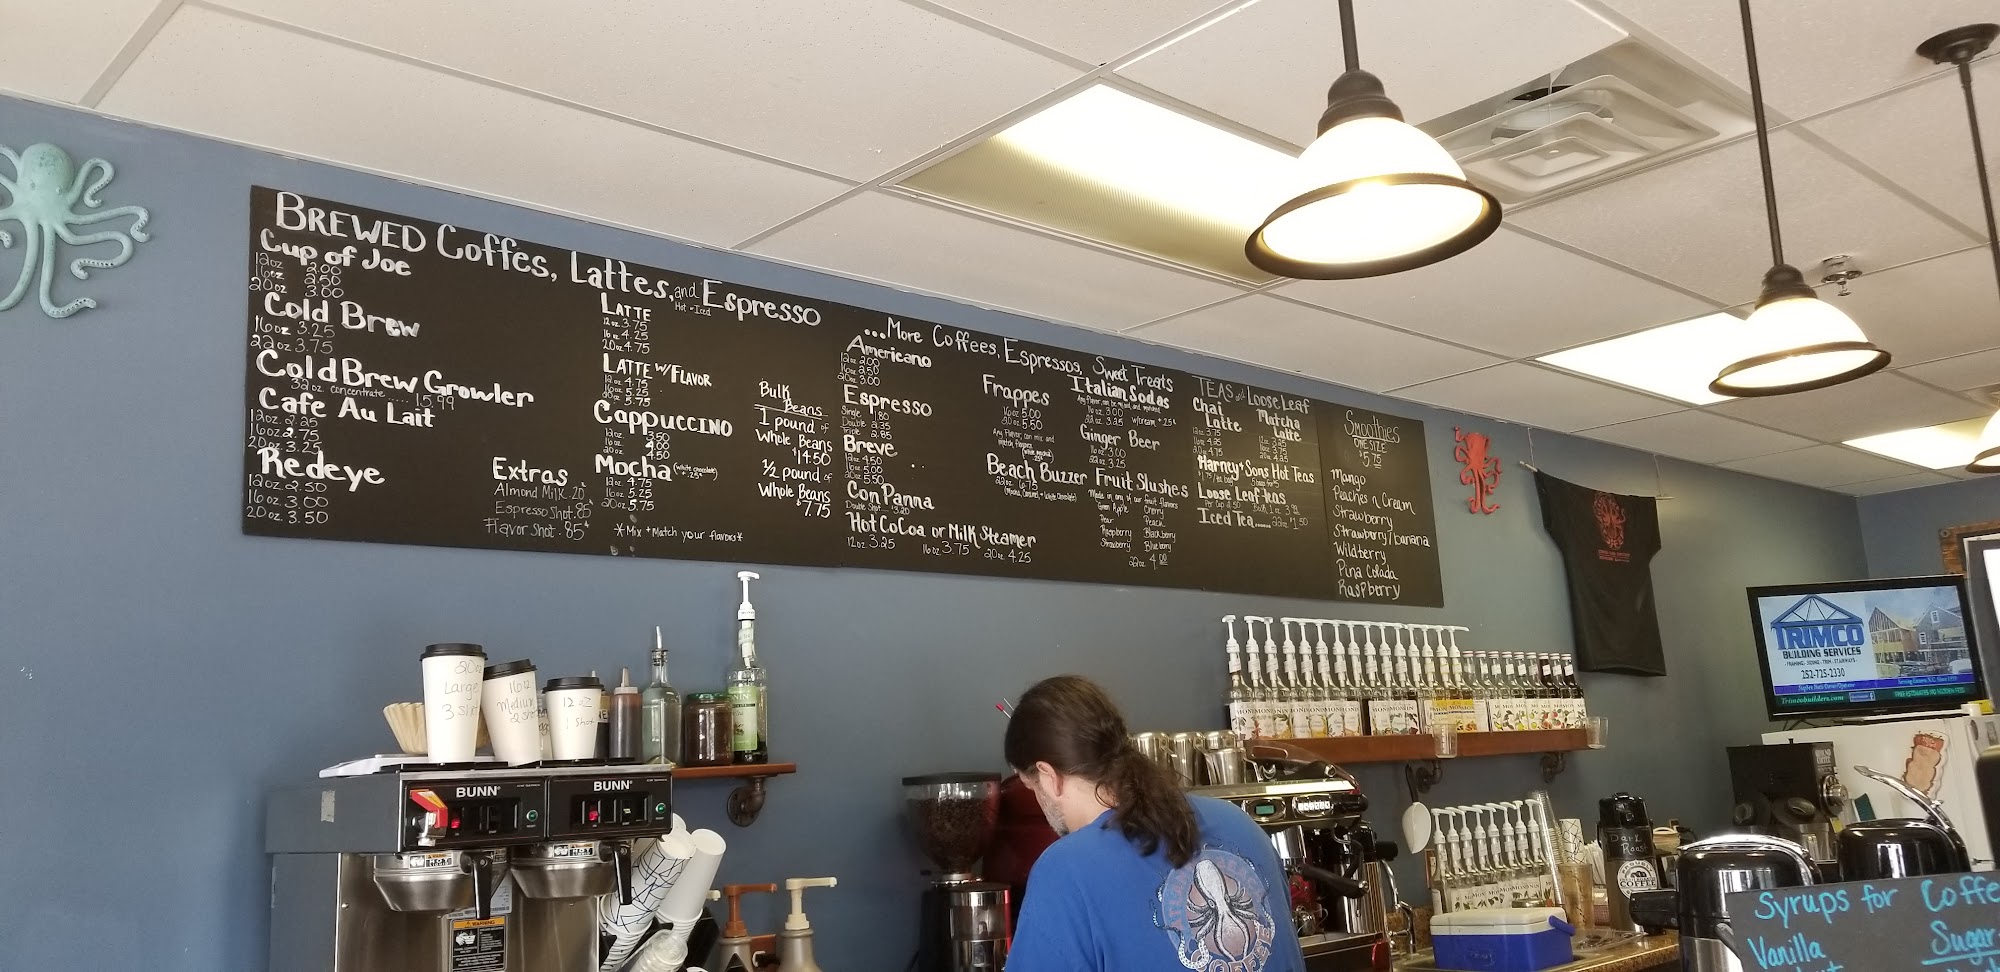 BREWED Coffees, Lattes, and Espresso
Hot + Iced
Cup of Joe
12oz 2.00
16oz 2.50
20oz 3.00
Cold Brew
16oz 3.25
22oz 3.75
Cold Brew Growler
32oz concentrate .... 15.99
Cafe Au Lait
12oz 2.25
16oz 2.75
20oz 3.25
Redeye
12oz 2.50
16oz 3.00
20oz 3.50
Extras
Almond Milk .20¢
Espresso Shot .85¢
Flavor Shot .85¢
LATTE
12oz 3.75
16oz 4.25
20oz 4.75
LATTE W/ FLAVOR
12oz 4.75
16oz 5.25
20oz 5.75
CAPPUCCINO
12oz 3.50
16oz 4.00
20oz 4.50
Mocha (white chocolate) + .25¢
12oz 4.75
16oz 5.25
20oz 5.75
*Mix + Match your flavors*
Bulk
Beans
1 pound of
Whole Beans
$14.50
1/2 pound of
Whole Beans
$7.75
...More Coffees, Espressos, Sweet Treats
Americano
12oz 2.00
16oz 2.50
20oz 3.00
Espresso
Single 1.80
Double 2.35
Triple 2.85
Breve
12oz 4.50
16oz 5.00
20oz 5.50
Con Panna
Double Shot ... $3.20
Hot CoCoa or Milk Steamer
12oz 3.25 16oz 3.75 20oz 4.25
Frappes
16oz 5.00
20oz 5.50
Any Flavor, can mix and
match flavors
Beach Buzzer
22oz 6.75
(Mocha, Caramel, + White Chocolate)
Italian Sodas
Any Flavor, can be mixed and matched
16oz 3.00
22oz 3.25 w/cream + .25¢
Ginger Beer
16oz 3.00
22oz 3.25
Fruit Slushes
Made in any of our fruit flavors
Green Apple Cherry
Pear Peach
Raspberry Blackberry
Strawberry Blueberry
22oz 4.00
TEAS and Loose Leaf
Chai
Latte
12oz 3.75
16oz 4.25
20oz 4.75
Matcha
Latte
12oz 3.25
16oz 3.75
20oz 4.25
Harney + Sons Hot Teas
Loose Leaf teas
Iced Tea...... 22oz $1.50
Smoothies
ONE SIZE
$5.75
Mango
Peaches n Cream
Strawberry
Strawberry/banana
Wildberry
Pina Colada
Raspberry
20oz
Large
3 shot
16oz
Medium
2 shot
12oz
1 shot
BUNN
BUNN
WARNING
TRIMCO
BUILDING SERVICES
FRAMING - SIDING - TRIM - STAIRWAYS
252-725-2330
Trimcobuilders.com
FREE ESTIMATES NO HIDDEN FEES
Dark
Roast
COFFEE
Syrups for Coffe
Vanilla
Sugar